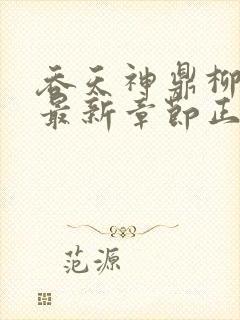 吞天神鼎柳
最新章节正
范源